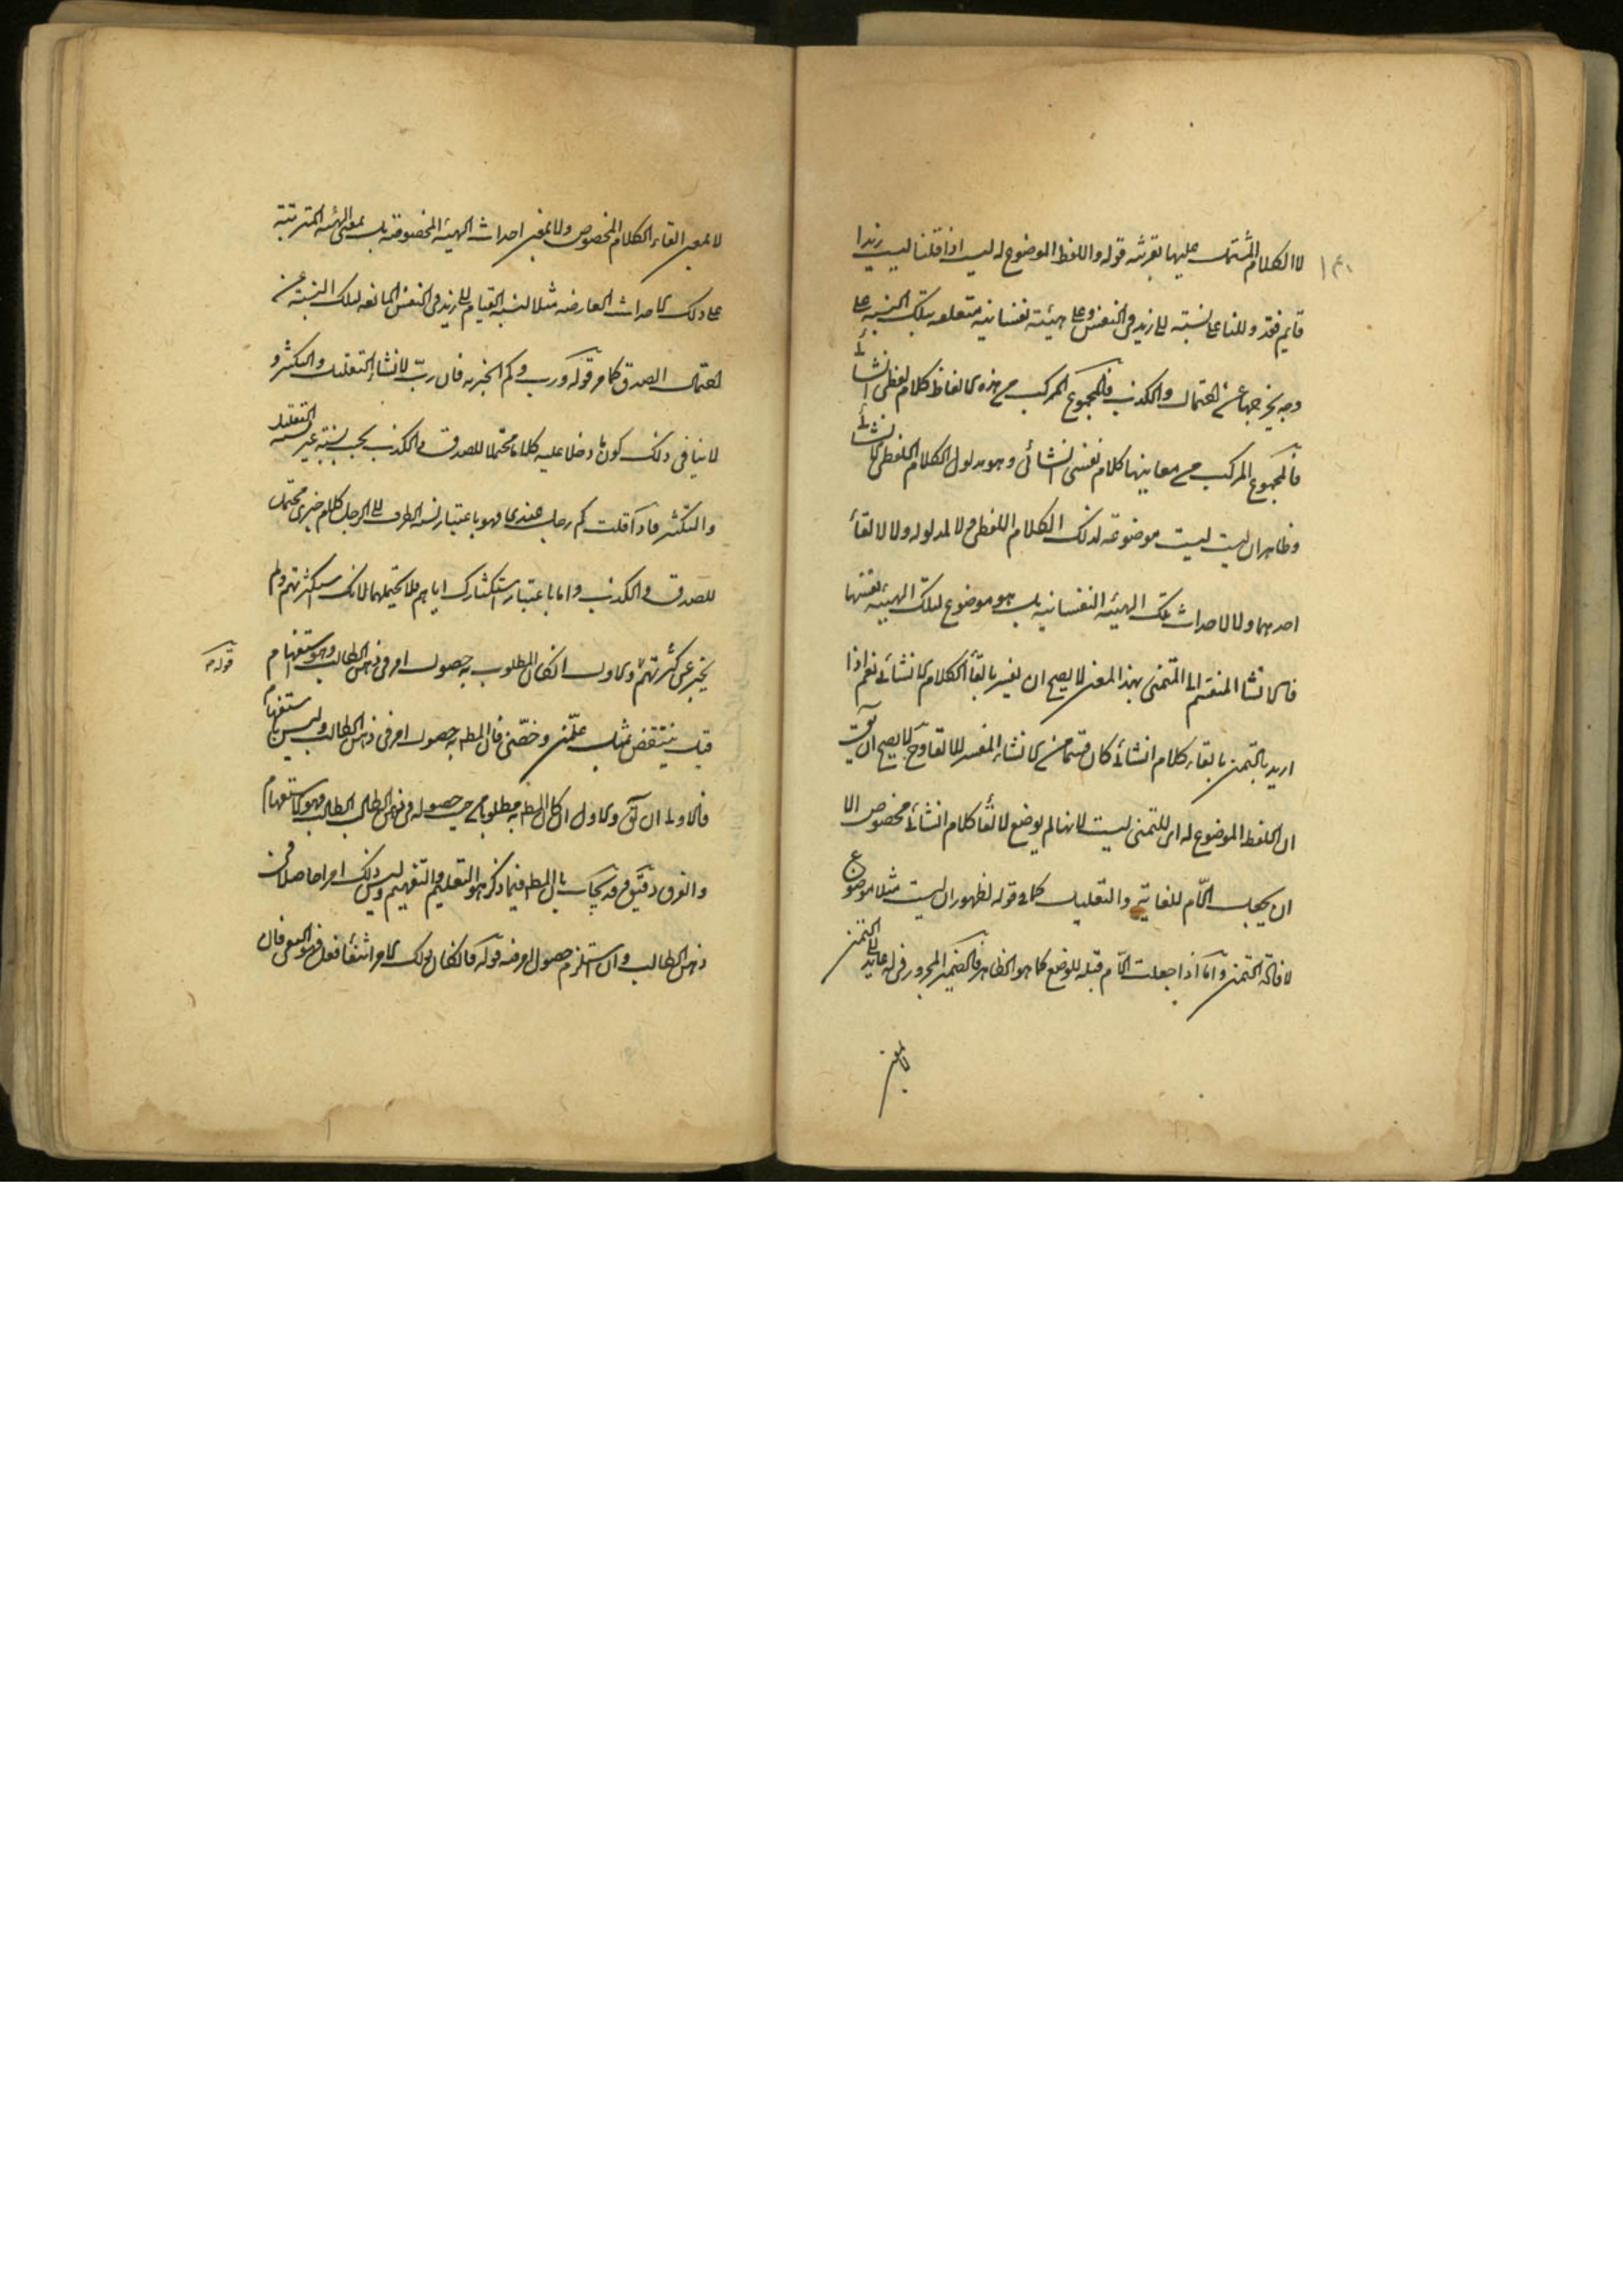 لا الكلام المشتمل عليها بقرينة قوله واللفظ الموضوع له ليت اذا قلنا ليت زيدا
قايم فقد دللنا على نسبته الى زيد في النفس وعلى هيئة نفسانية متعلقه بتلك النسبة على
وجه يخرجها عن احتمال والكذب فالمجموع المركب من هذه الالفاظ كلام لفظي انشائي
فالمجموع المركب من معانيها كلام نفسي انشائي وهو مدلول الكلام اللفظي الانشائي
وظاهر ان ليت ليست موضوعة لذلك الكلام اللفظي ولا لمدلوله ولا لالقأ
احدهما ولا لاحداث تلك الهيئة النفسانية بل هو موضوع لتلك الهيئة نفسها
فالانشا المنقسم الى التمني بهذا المعنى لا يصح ان يفسر بالقأ الكلام الانشائي نعم اذا
اريد بالتمنى القاء كلام انشائي كان قسما من الانشاء المفسر بالالقا وح لا يصح ان يق
ان اللفظ الموضوع له اى للتمنى ليت لانها لم يوضع لالقأ كلام انشائي مخصوص الا
ان يجعل اللام للغاية والتعليل كما في قوله لظهور ان ليت مثلا موضوع
لافادة التمنى واما اذا جعلت اللام صلة للوضع كما هو الظاهر فالضمير المجرور في له عايد الى التمنى
لا بمعنى
لا بمعنى القاء الكلام المخصوص ولا بمعنى احداث الهيئة المخصوصة بل بمعنى الهيئة المترتبة
على ذلك الاحداث العارضه مثلا لنسبة القيام الى زيد في النفس المانعه لتلك النسبة عن
احتمال الصدق كما مر قوله ورب وكم الخبريه فان رب لانشاء التقليل والتكثير و
لا ينافي ذلك كون ما دخلا عليه كلاما محتملا للصدق والكذب بحسب نسبته غير التقليل
والتكثير فاذا قلت كم رجل عندى فهو باعتبار نسبة الظرف الى الرجل كلام خبرى محتمل
للصدق والكذب واما باعتبار استكثارك اياهم فلا يحتملهما لانك استكثرتهم ولم
يخبر عن كثرتهم والاول ان كان المطلوب به حصول امر في ذهن الطالب وهو استفهام
قوله
قيل ينتقض بمثل علمنى وفهمنى فان المط به حصول امر في ذهن الطالب وليس باستفهام
فالاولى ان يق والاول ان كان المط به مطلوبا من حيث حصوله في ذهن الطالب فهو الاستفهام
والفرق دقيق وقد يجاب بان المط فيما ذكر هو التعليم والتفهيم وليس ذلك امرا حاصلا في
ذهن الطالب وان استلزم حصول امر فيه قوله فان كان ذلك الامر انتفأ فعل فهو النهي فان